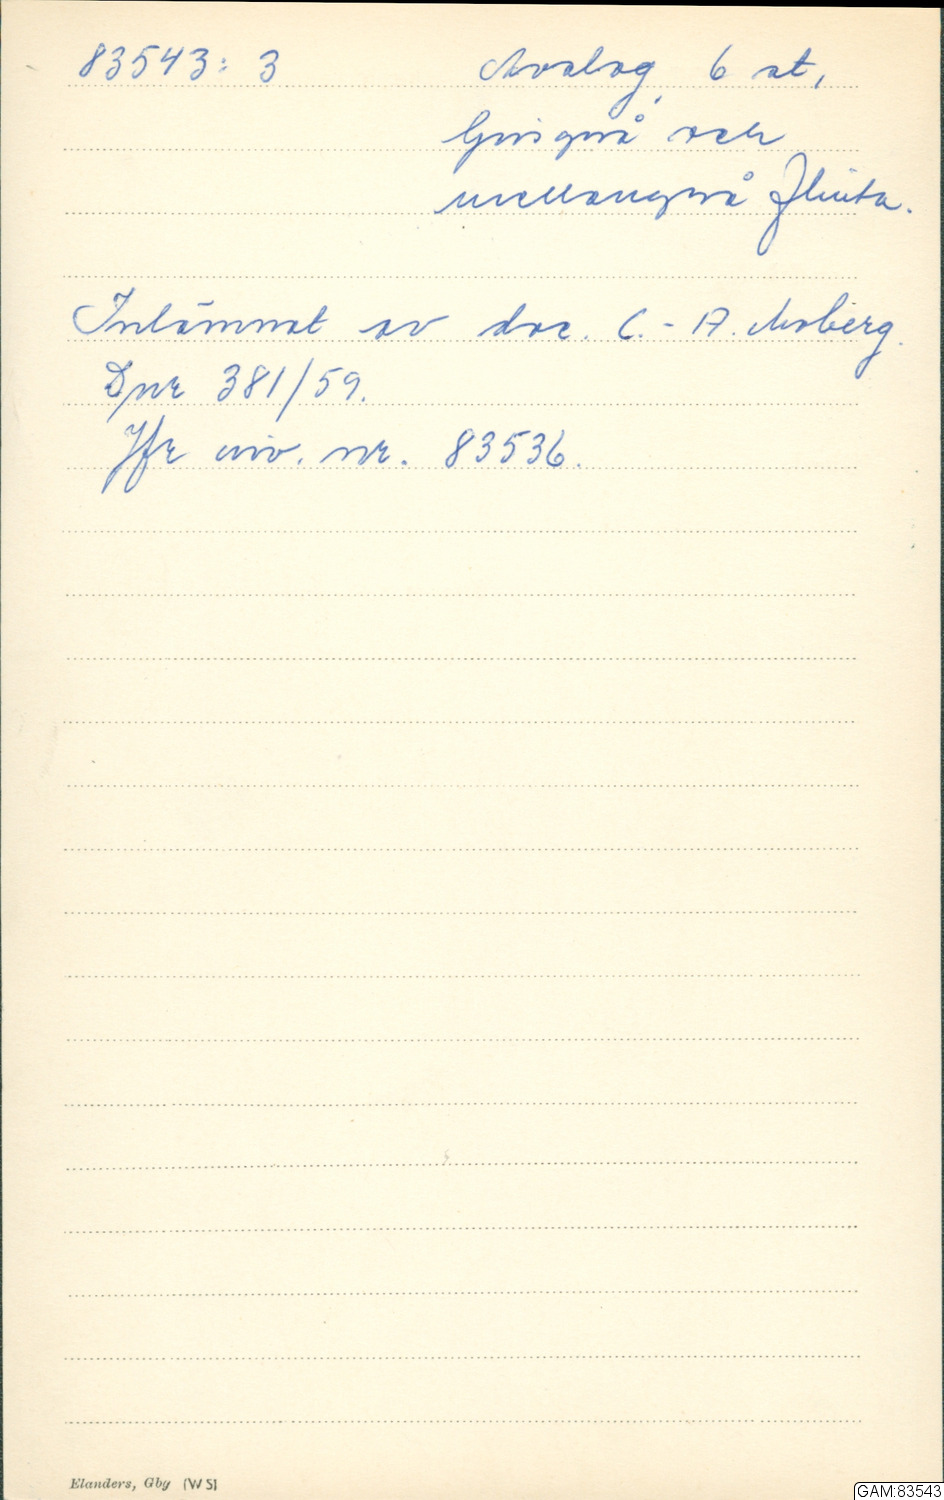 83543: 3 Avslag, 6 st,
ljusgrå och
mellangrå flinta.
Inlämnat av doc. C.-A. Moberg.
Dnr 381/59.
Jfr inv. nr. 83536.
Elanders, Gby (WS)
GAM:83543